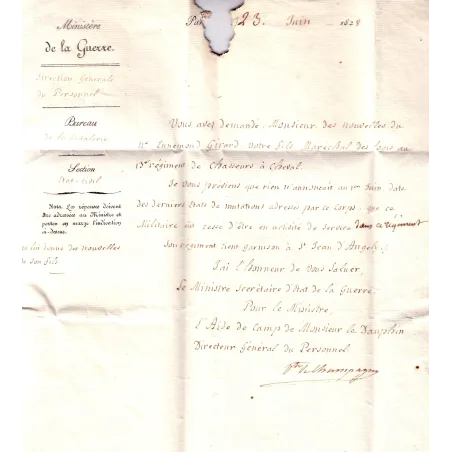 Ministère
de la Guerre.
Direction Générale
du Personnel
Bureau
de la Cavalerie
Section
Nota. Les réponses doivent
être adressées au Ministre et
porter en marge l'indication
ci-dessus.
lui donne des nouvelles
de son fils
23 Juin 1828
Vous avez demandé, Monsieur, des nouvelles du
Gérard votre fils Maréchal des logis au
régiment de Chasseurs à Cheval.
Je vous préviens que rien n'annonçait au 1er Juin date
des derniers états de mutations adressés par ce Corps, que ce
Militaire eût cessé d'être en activité de service dans ce régiment
Son régiment tient garnison à St Jean d'Angely.
J'ai l'honneur de vous saluer.
Le Ministre Secrétaire d'Etat de la Guerre.
Pour le Ministre,
L'Aide de Camp de Monsieur le Dauphin
Directeur Général du Personnel